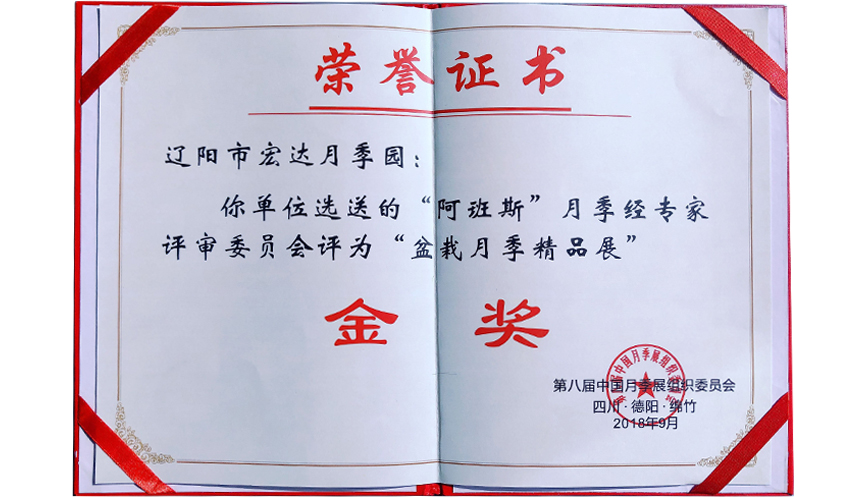 荣誉证书
辽阳市宏达月季园：
你单位选送的“阿班斯”月季经专家
评审委员会评为“盆栽月季精品展”
金奖
第八届中国月季展组织委员会
四川·德阳·绵竹
2018年9月